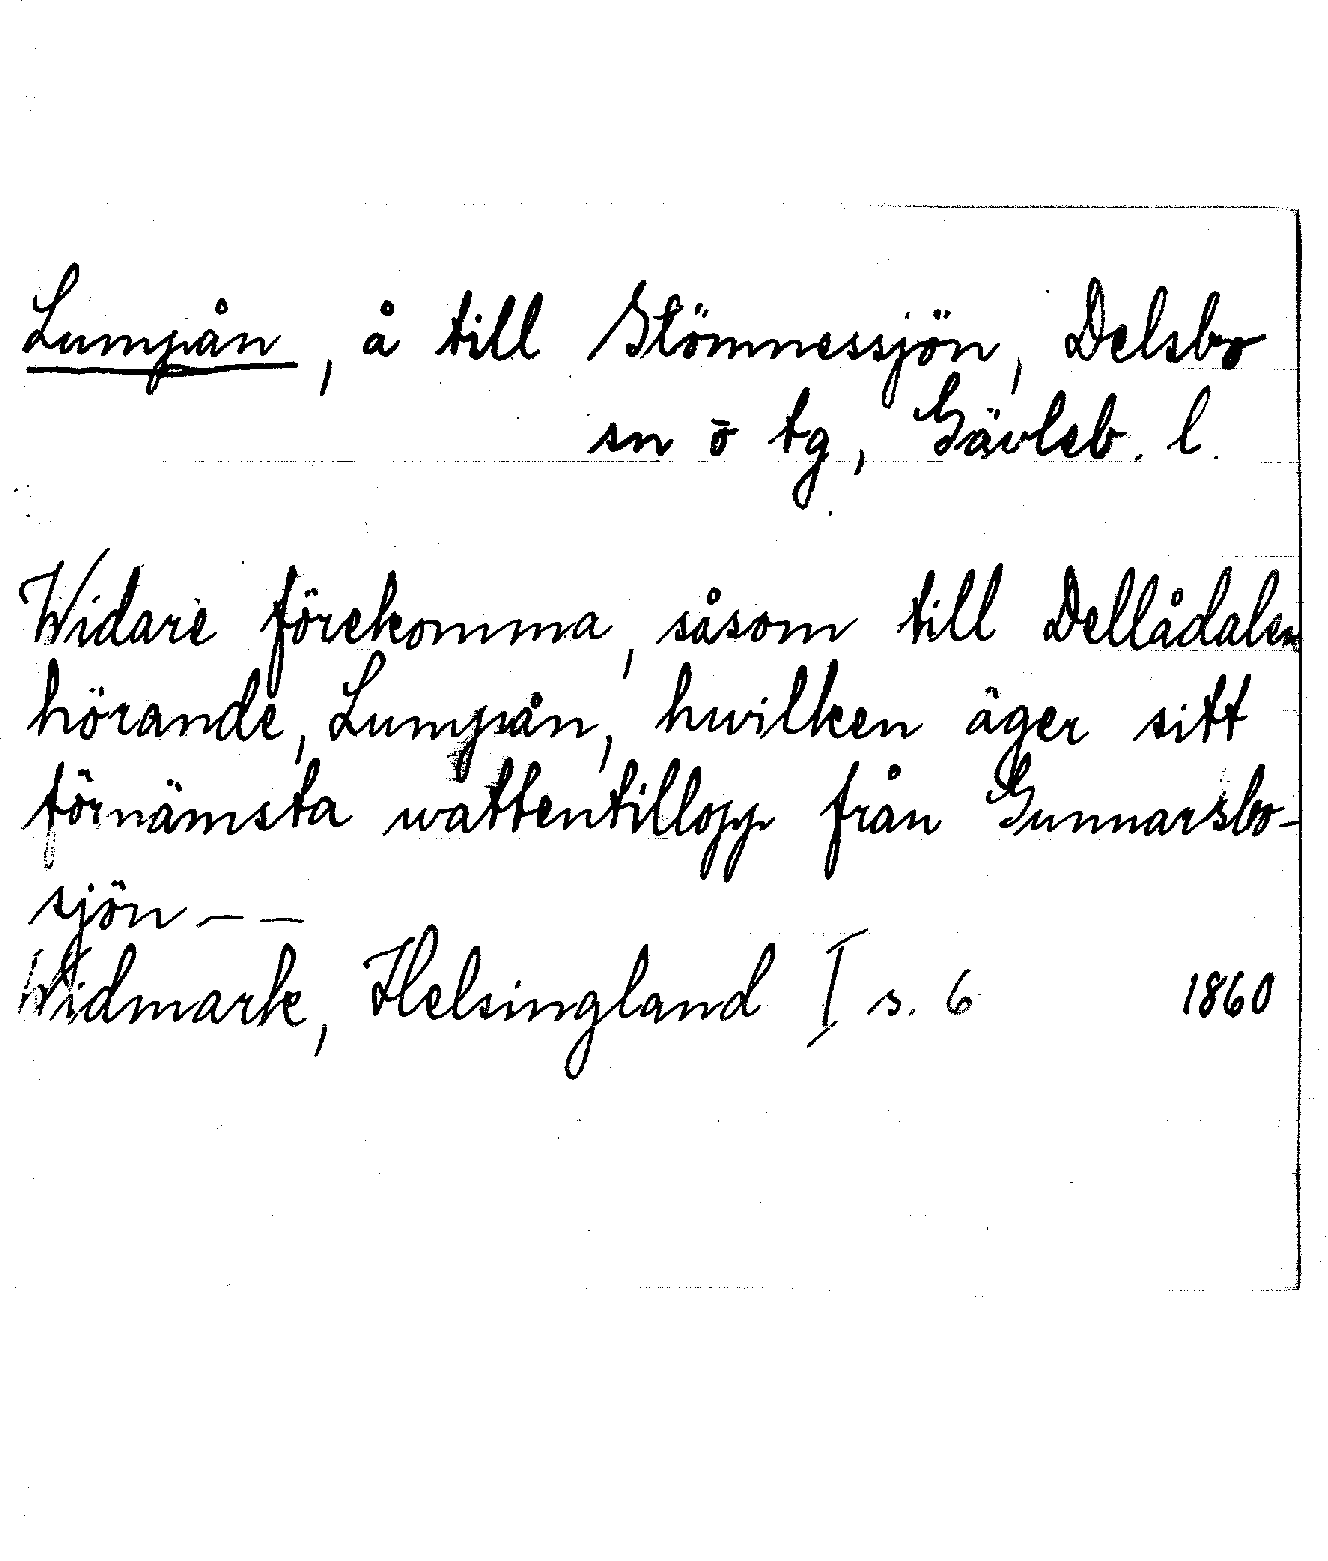 Lumpån, å till Stömnessjön, Delsbo
sn ö tg, Gävleb. l.
Widare förekomma, såsom till Dellådalen
hörande, Lumpån, hwilken äger sitt
förnämsta wattentillopp från Gunnarsbo-
sjön – –
Widmark, Helsingland I s. 6 1860